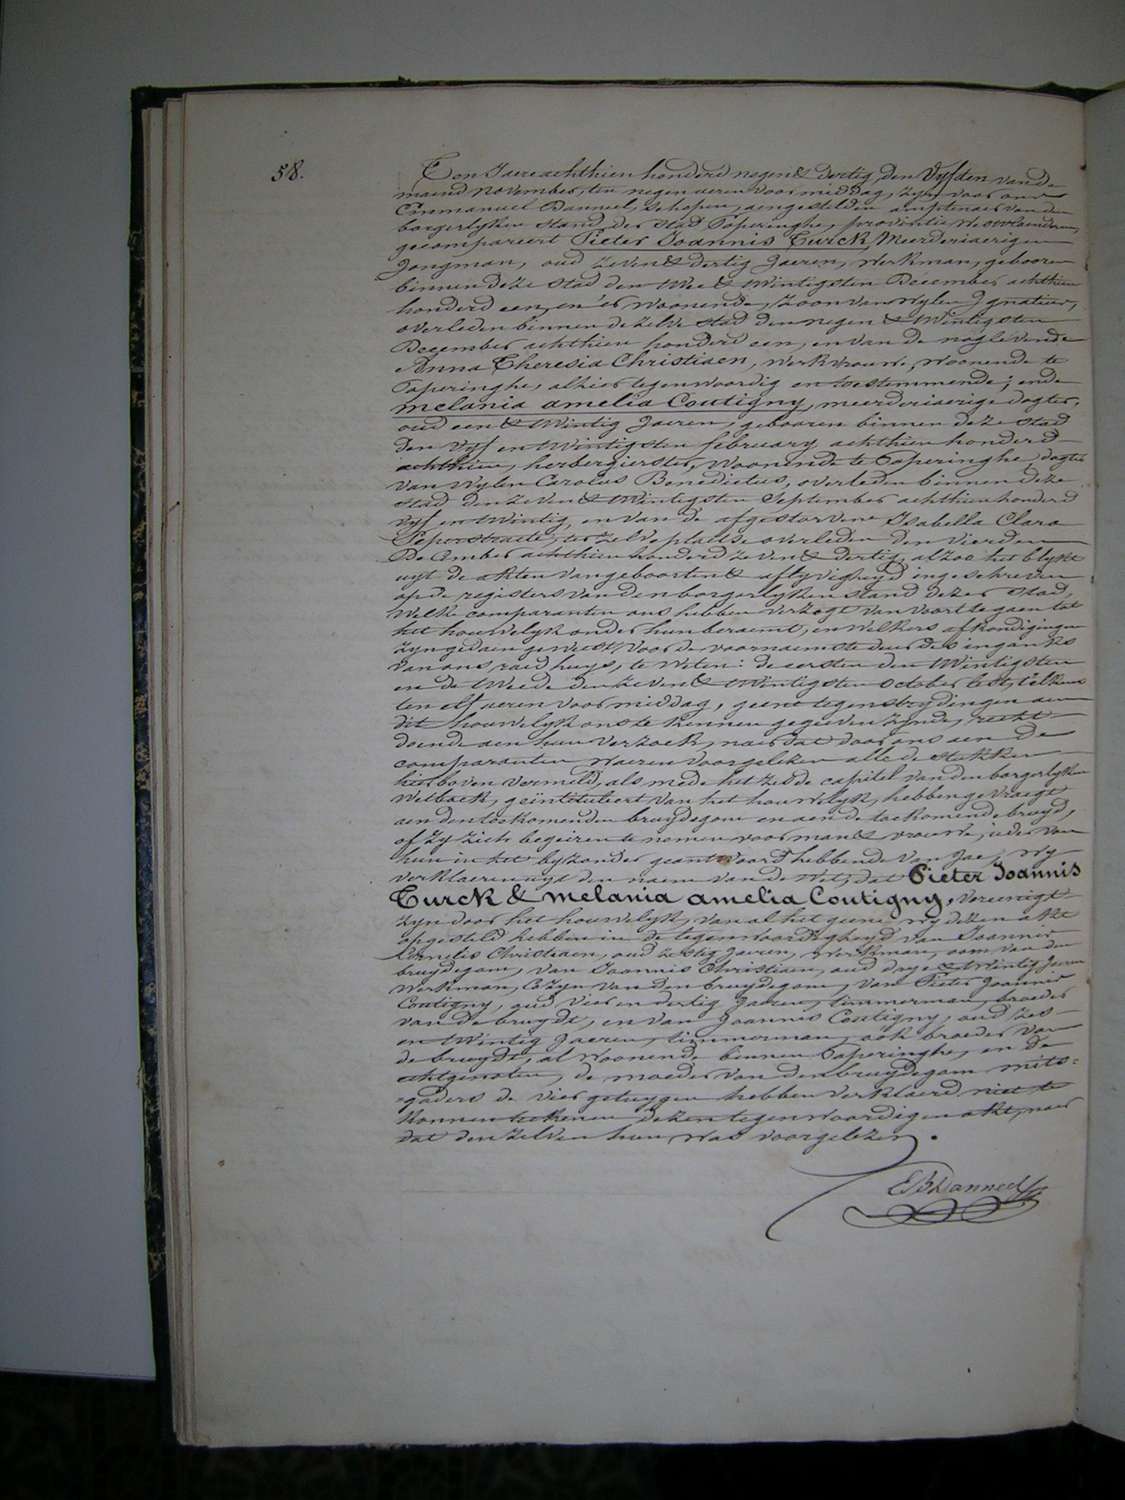 58.
Ten Jaere achthien honderd negen & dertig, den Vyfden van de
maend november, ten negen ueren voormiddag, zyn voor ons
Emmanuel Danneel, schepen, aengestelden amptenaer van den
borgerlyken stand der stad Poperinghe, provintie Westvlaenderen,
gecompareert Pieter Joannis Turck, Meerderjaerigen
Jongman, oud Zeven & dertig Jaeren, Werkman, gebooren
binnen deze stad den twee & twintigsten December achthien
honderd een, en er woonende, Zoon van wylen Ignatius,
overleden binnen dezelve stad den negen & twintigsten
December achthien honderd een, en van de nog levende
Anna Theresia Christiaen, werkvrouwe, woonende te
Poperinghe, alhier tegenwoordig en toestemmende; ende
melania amelia Coutigny, meerderjaerige dogter,
oud een & twintig Jaeren, gebooren binnen deze stad
den Vyf en twintigsten february achthien honderd
achthien, herbergierster, woonende te Poperinghe, dogter
van wylen Carolus Benedictus, overleden binnen deze
stad den zeven & twintigsten September achthien honderd
vyf en twintig, en van de afgestorvene Isabella Clara
Peperstraete, ter zelve plaetse overleden den vierden
December achthien honderd zeven & dertig, alzoo het blykt
uyt de akten van geboorten & aflyvigheyd ingeschreven
op de registers van den borgerlyken stand dezer stad,
Welke comparanten ons hebben verzogt van voort te gaen tot
het houwelyk onder hun beraemt, en welkers afkondigingen
zyn gedaen geweest voor de voornaemste deur des ingangs
van ons raedhuys, te weten: de eersten den twintigsten
en de tweede den zeven & twintigsten october lest, telkens
ten elf ueren voormiddag, geene tegenstrydingen aen
dit houwelyk ons te kennen gegeven zynde, recht
doende aen hun verzoek, naer dat door ons aen de
comparanten waeren voorgelezen alle de stukken
hier boven vermeld, als mede het zesde capitel van den borgerlyken
Wetboek, geintituleert van het houwelyk, hebben gevraegt
aen den toekomenden bruydegom en aen de toekomende bruyd,
of zy zich begeiren te nemen voor man & vrouwe, ieder van
hun in het byzonder geantwoord hebbende van Jae, wy
verklaeren uyt den naem van de Wet, dat Pieter Joannis
Turck & melania amelia Coutigny, vereenigt
zyn door het houwelyk, van al het geene wy dezen akt
opgesteld hebben in de tegenwoordigheyd van Joannis
Cornelis Christiaen, oud zestig Jaeren, werkman, oom van den
bruydegom, van Joannis Christiaen, oud drye & twintig Jaeren
Werkman, Cozyn van den bruydegom, van Pieter Joannis
Coutigny, oud vier en dertig Jaeren, timmerman, broeder
van de bruydt, en van Joannis Coutigny, oud zes
en twintig Jaeren, timmerman, ook broeder van
de bruydt, al woonende binnen Poperinghe, en de
echtgenoten, de moeder van den bruydegom mits=
=gaders de vier getuygen hebben verklaerd niet te
konnen teekenen dezen tegenwoordigen akt, naer
dat den zelven hun was voorgelezen.
EBDanneel